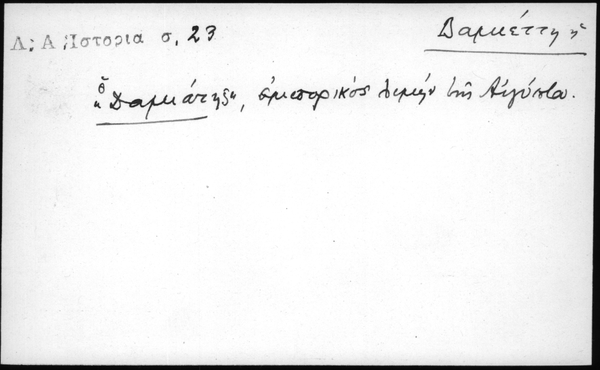 Λ: Α Ἱστορια σ. 23
Δαμιέττης
ὁ "Δαμιάτης", ἐμπορικός λιμήν τῆς Αἰγύπτου.